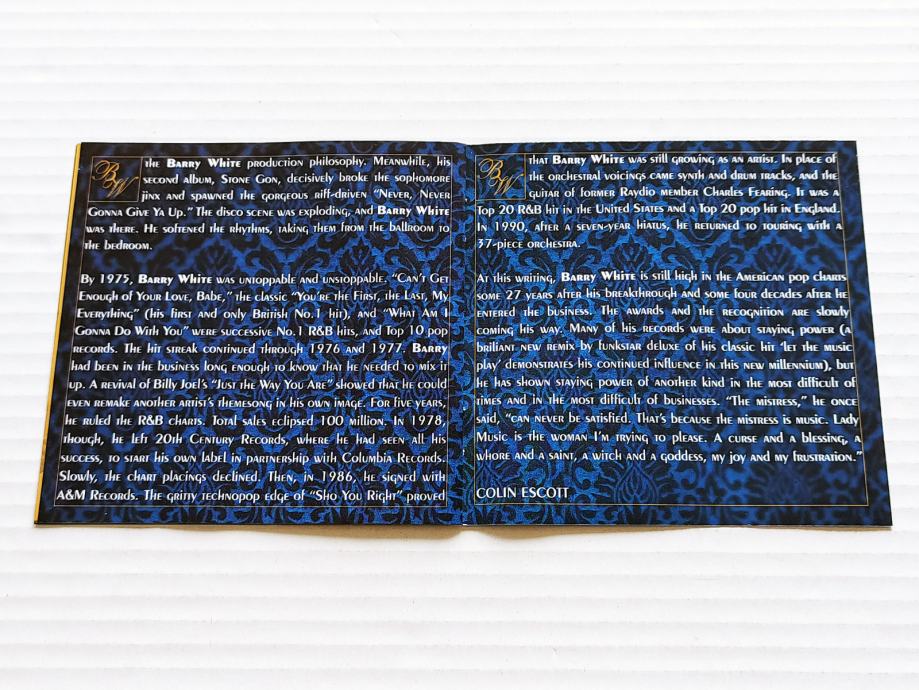 BW
the Barry White production philosophy. Meanwhile, his
second album, Stone Gon, decisively broke the sophomore
jinx and spawned the gorgeous riff-driven “Never, Never
Gonna Give Ya Up.” The disco scene was exploding, and Barry White
was there. He softened the rhythms, taking them from the ballroom to
the bedroom.
By 1975, Barry White was untoppable and unstoppable. “Can't Get
Enough of Your Love, Babe,” the classic “You're the First, the Last, My
Everything” (his first and only British No.1 hit), and “What Am I
Gonna Do With You” were successive No.1 R&B hits, and Top 10 pop
records. The hit streak continued through 1976 and 1977. Barry
had been in the business long enough to know that he needed to mix it
up. A revival of Billy Joel's “Just the Way You Are” showed that he could
even remake another artist's themesong in his own image. For five years,
he ruled the R&B charts. Total sales eclipsed 100 million. In 1978,
though, he left 20th Century Records, where he had seen all his
success, to start his own label in partnership with Columbia Records.
Slowly, the chart placings declined. Then, in 1986, he signed with
A&M Records. The gritty technopop edge of “Sho You Right” proved
BW
that Barry White was still growing as an artist. In place of
the orchestral voicings came synth and drum tracks, and the
guitar of former Raydio member Charles Fearing. It was a
Top 20 R&B hit in the United States and a Top 20 pop hit in England.
In 1990, after a seven-year hiatus, he returned to touring with a
37-piece orchestra.
At this writing, Barry White is still high in the American pop charts
some 27 years after his breakthrough and some four decades after he
entered the business. The awards and the recognition are slowly
coming his way. Many of his records were about staying power (a
briliant new remix by funkstar deluxe of his classic hit 'let the music
play' demonstrates his continued influence in this new millennium), but
he has shown staying power of another kind in the most difficult of
times and in the most difficult of businesses. “The mistress,” he once
said, “can never be satisfied. That's because the mistress is music. Lady
Music is the woman I'm trying to please. A curse and a blessing, a
whore and a saint, a witch and a goddess, my joy and my frustration.”
COLIN ESCOTT